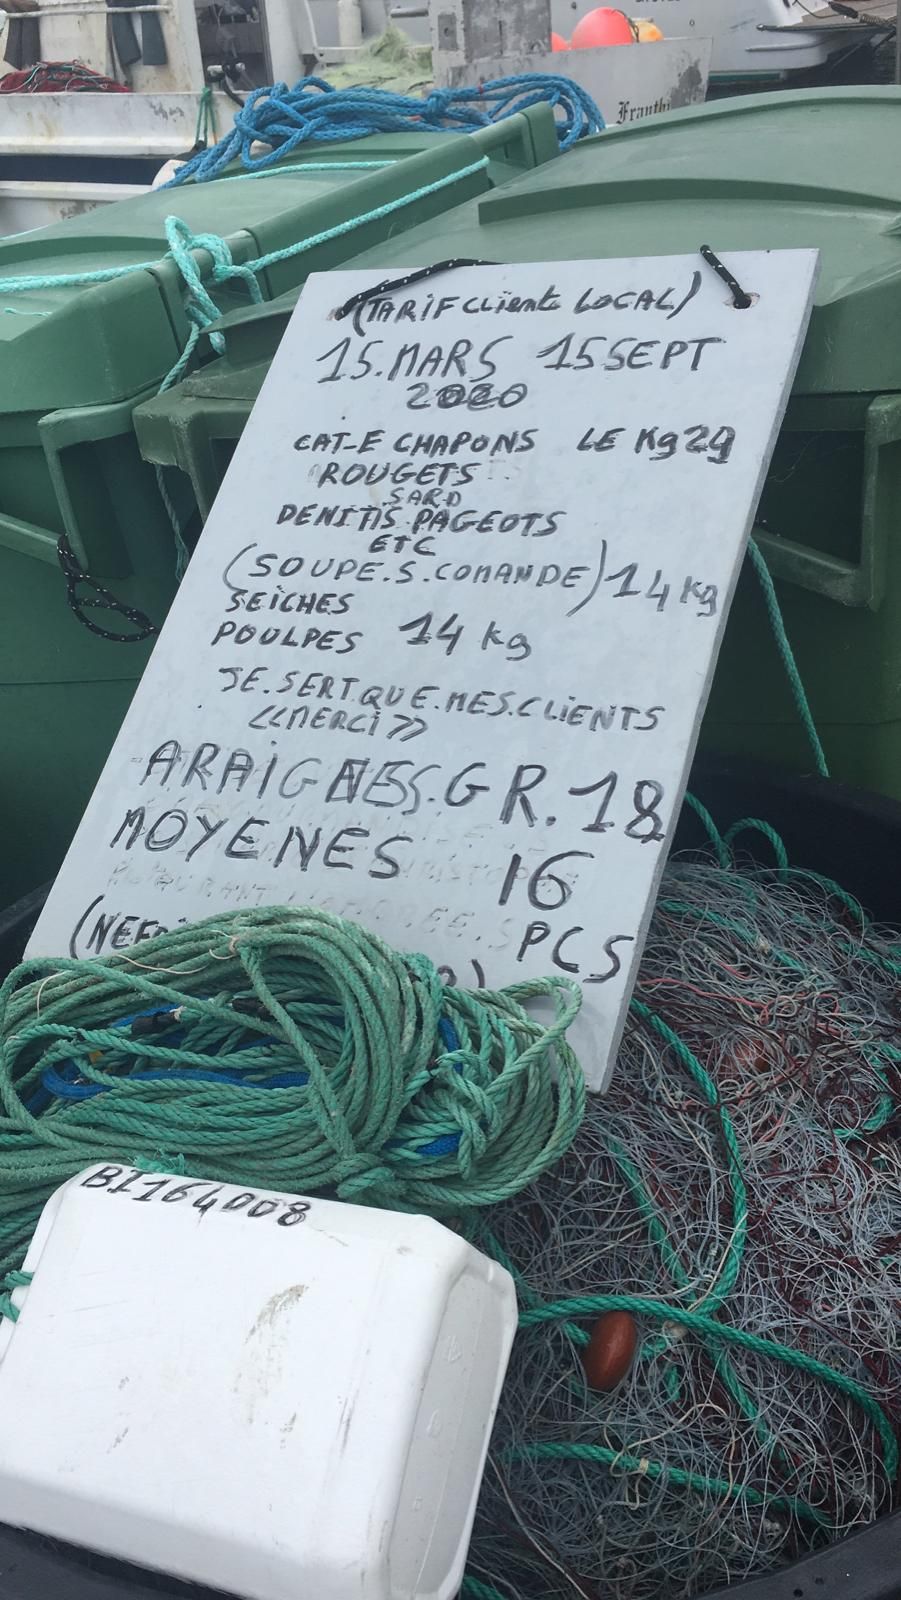 Franthi
(TARIF Clients LOCAL)
15.MARS 15 SEPT
2020
CAT-E CHAPONS LE Kg 29
ROUGETS
SARD
DENITIS PAGEOTS
ETC
(SOUPE.S.COMANDE) 14 kg
SEICHES
POULPES 14 kg
JE.SERT.QUE.MES.CLIENTS
<<MERCI>>
ARAIGNES.GR.18
MOYENES 16
PCS
BI164008